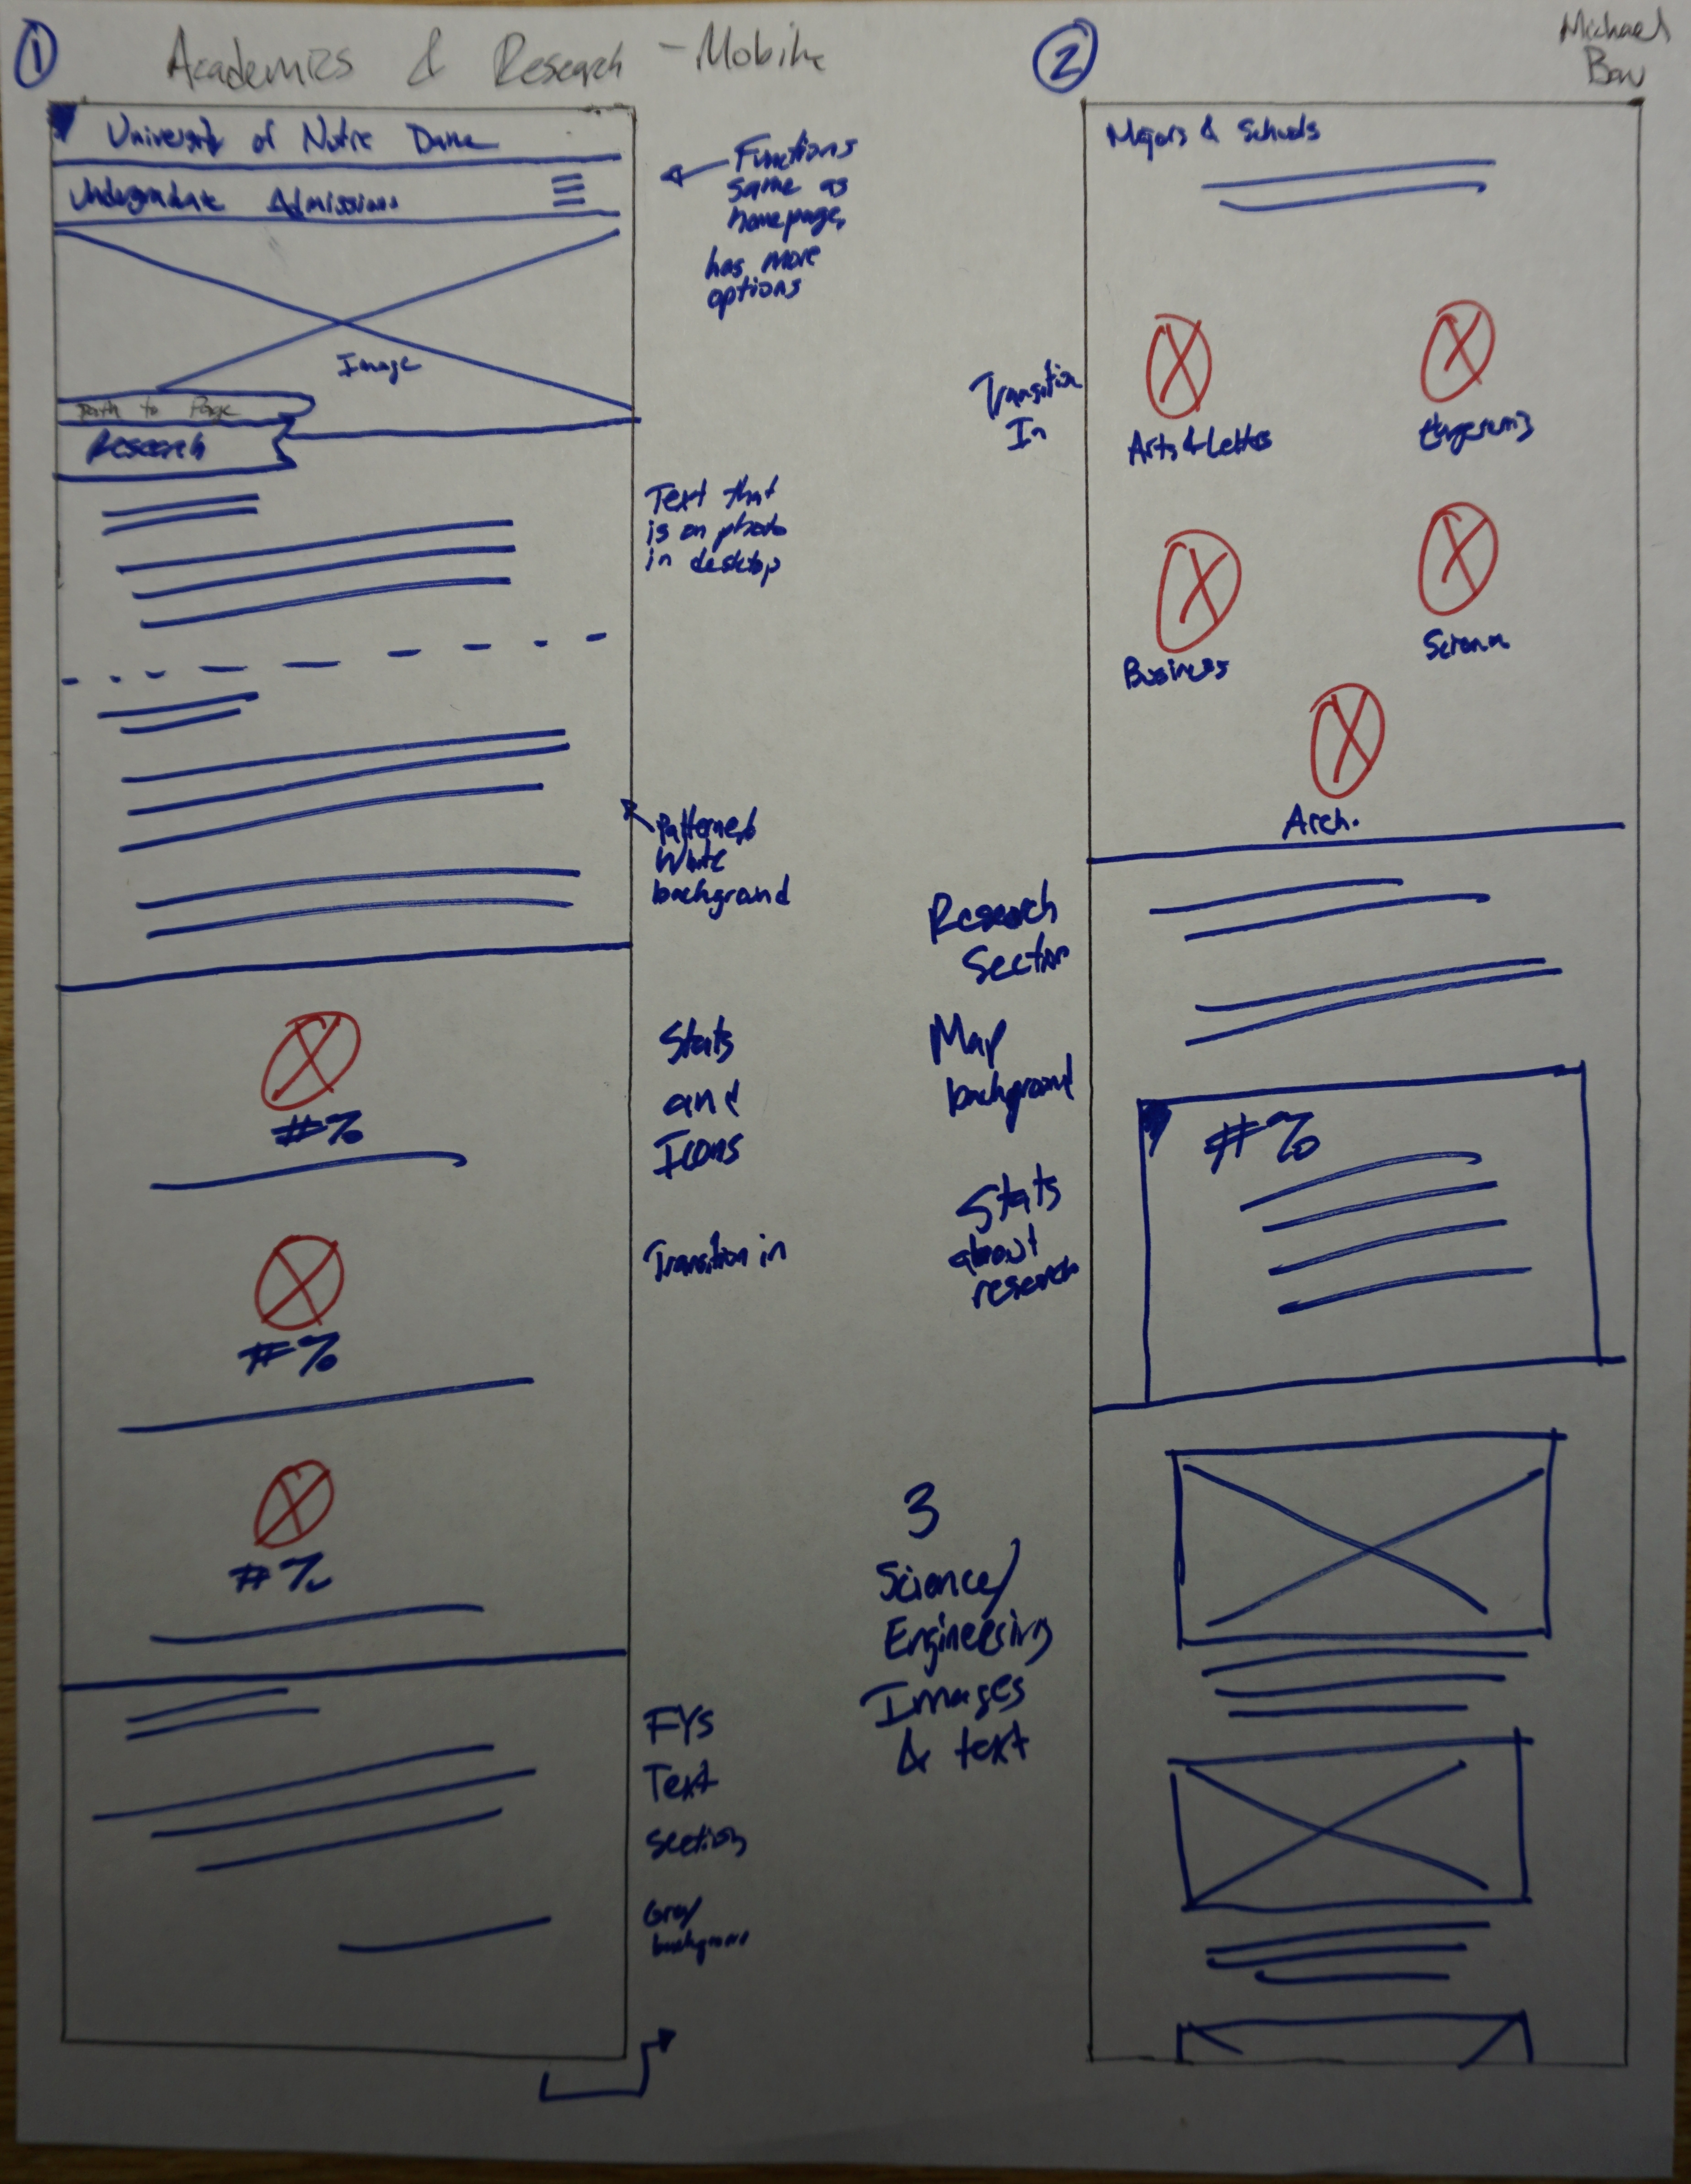 1
Academics & Research - Mobile
2
Michael
University of Notre Dame
Undergraduate Admissions
Image
Path to Page
Research
Functions
same as
homepage,
has more
options
Text that
is on photo
in desktop
Patterned
White
background
#%
#%
#%
Stats
and
Icons
Transition in
FYS
Text
section
Gray
background
Majors & Schools
Transition
In
Arts & Letters
Engineering
Business
Science
Arch.
Research
Section
Map
background
Stats
about
research
#%
3
Science/
Engineering
Images
& text